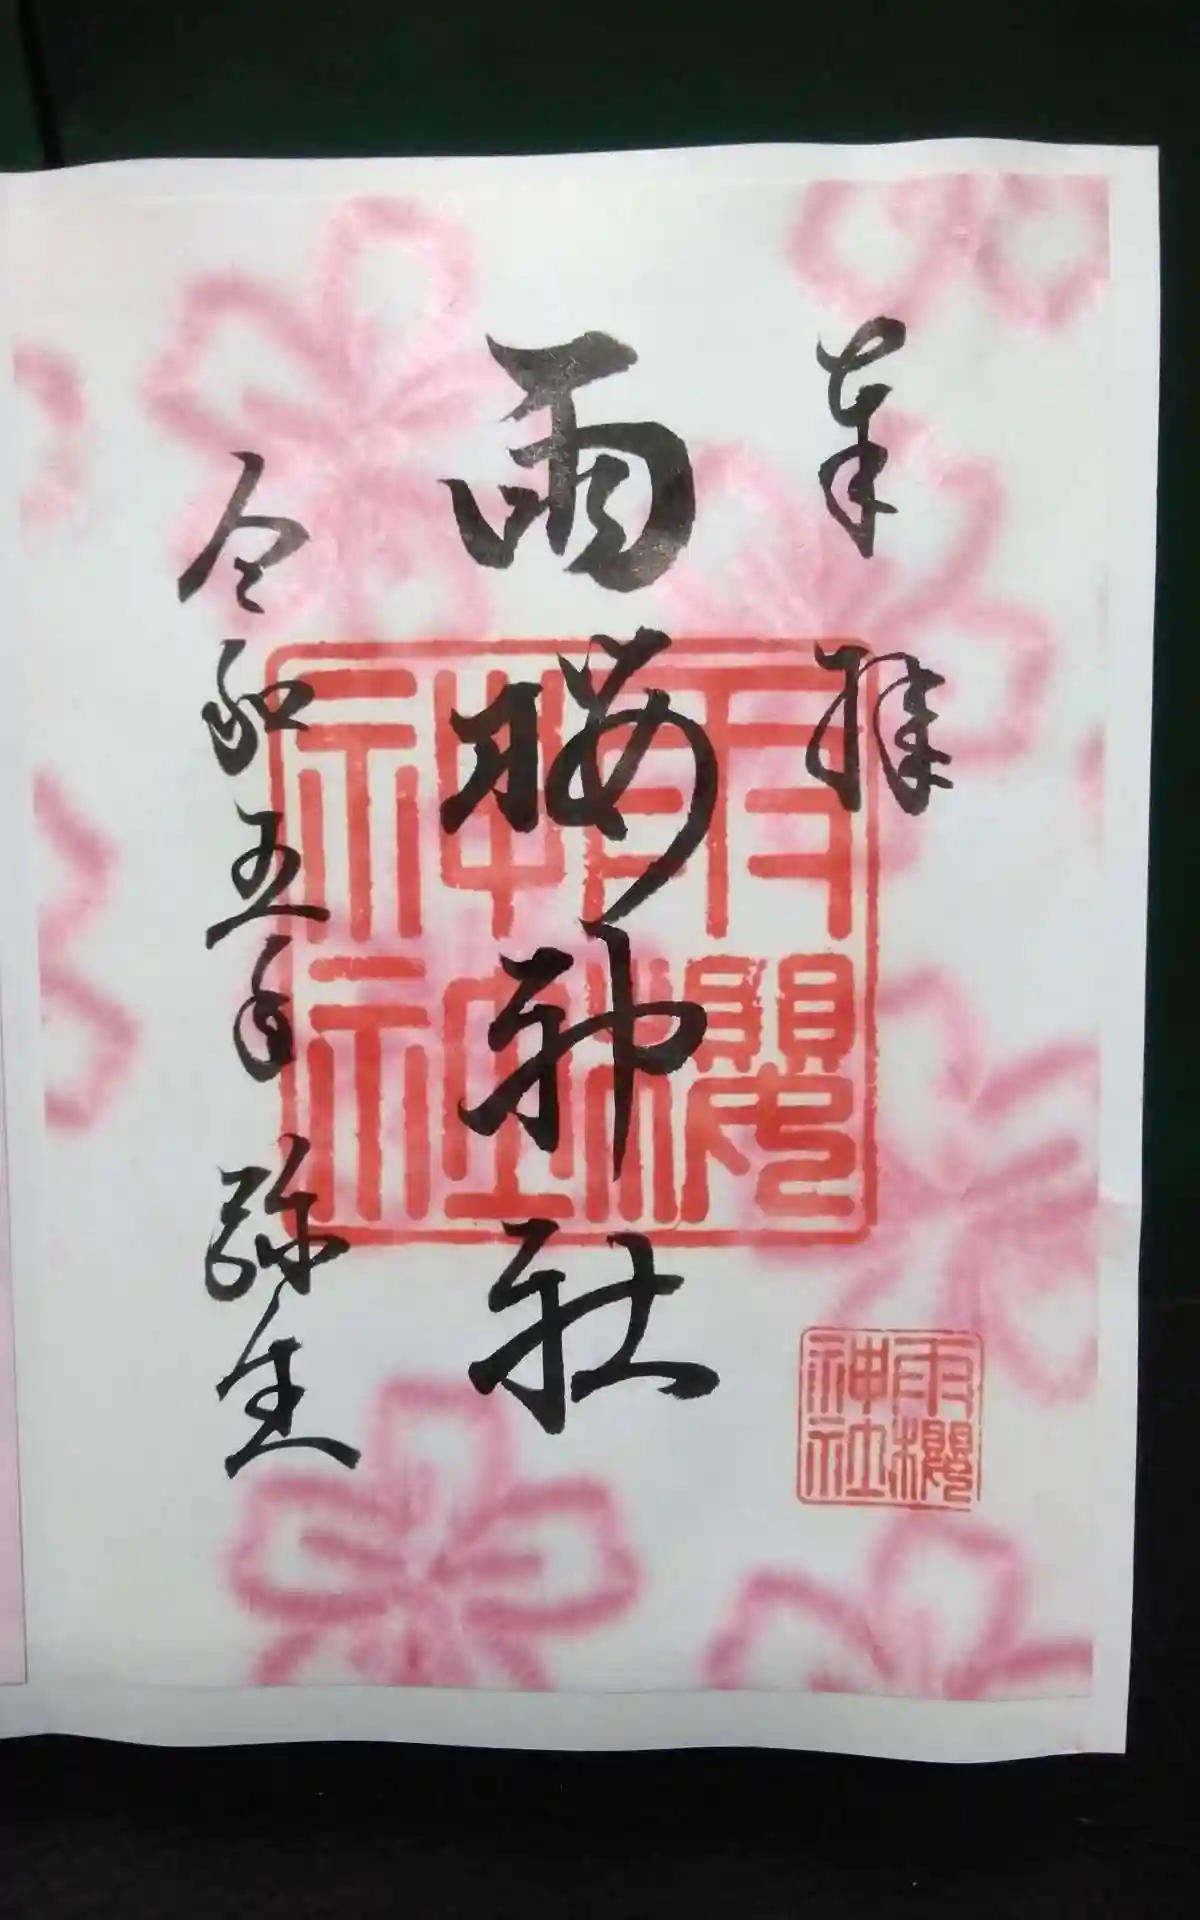 奉拝
雨桜神社
令和五年 弥生
雨櫻
神社
雨櫻
神社